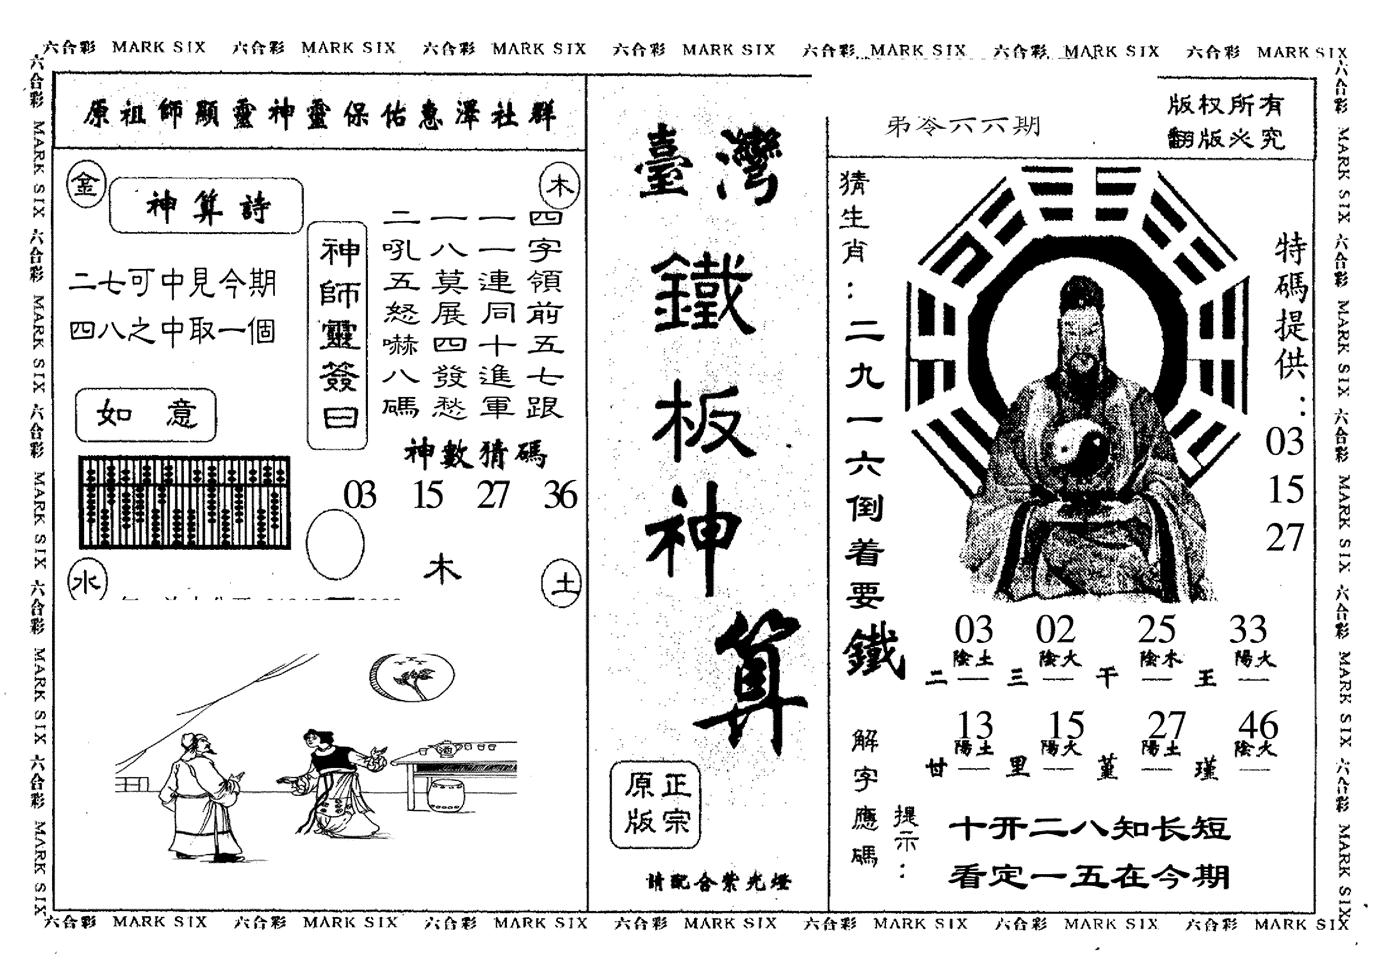 六合彩 MARK SIX 六合彩 MARK SIX 六合彩 MARK SIX 六合彩 MARK SIX 六合彩 MARK SIX 六合彩 MARK SIX 六合彩 MARK SIX
六合彩 MARK SIX 六合彩 MARK SIX 六合彩 MARK SIX 六合彩 MARK SIX 六合彩 MARK SIX
原祖師顯靈神靈保佑惠澤社群
金
木
神算詩
二七可中見今期
四八之中取一個
如意
神師靈簽曰
四字領前五七跟
一一連同十進軍
一八莫展四發愁
二吼五怒嚇八碼
神數猜碼
03 15 27 36
木
水
土
臺灣
鐵
板
神
算
正宗
原版
請配合紫光燈
弟冷六六期
版权所有
翻版必究
猜生肖:二九一六倒着要
鐵
特碼提供:
03
15
27
03 02 25 33
陰土 陰火 陰木 陽火
二一 三一 干一 王一
13 15 27 46
陽土 陽火 陽土 陰火
廿一 里一 堇一 瑾一
解字應碼
提示:
十开二八知长短
看定一五在今期
六合彩 MARK SIX 六合彩 MARK SIX 六合彩 MARK SIX 六合彩 MARK SIX 六合彩 MARK SIX
六合彩 MARK SIX 六合彩 MARK SIX 六合彩 MARK SIX 六合彩 MARK SIX 六合彩 MARK SIX 六合彩 MARK SIX 六合彩 MARK SIX